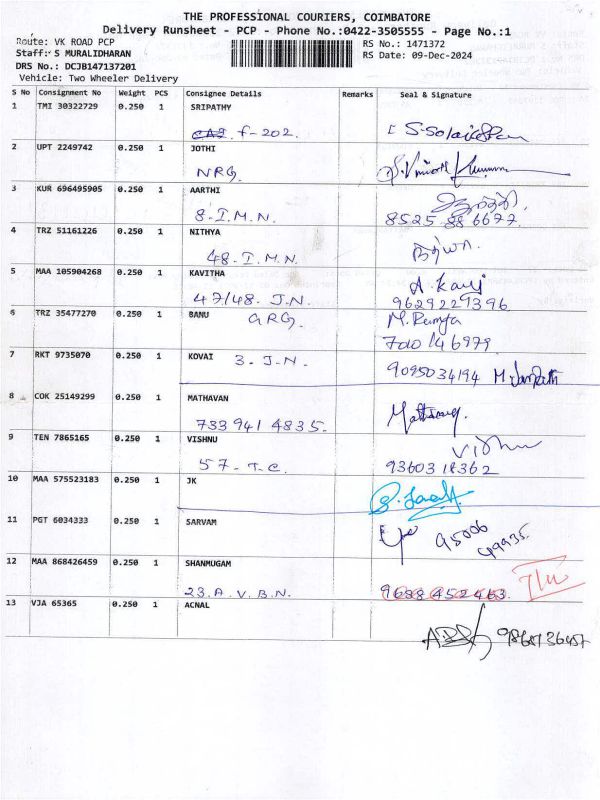 THE PROFESSIONAL COURIERS, COIMBATORE
Delivery Runsheet - PCP - Phone No.:0422-3505555 - Page No.:1
Route: VK ROAD PCP
RS No.: 1471372
Staff: S MURALIDHARAN
RS Date: 09-Dec-2024
DRS No.: DCJB147137201
Vehicle: Two Wheeler Delivery
S No Consignment No Weight PCS Consignee Details Remarks Seal & Signature
1 TMI 30322729 0.250 1 SRIPATHY
F-202.
2 UPT 2249742 0.250 1 JOTHI
NRG.
3 KUR 696495905 0.250 1 AARTHI
8-I.M.N. 8525 88 6677
4 TRZ 51161226 0.250 1 NITHYA
48-I.M.N. நித்யா.
5 MAA 105904268 0.250 1 KAVITHA A. Kavi
47/48. J.N. 9629229396
6 TRZ 35477270 0.250 1 BANU GRG. M. Ramya
7010146979
7 RKT 9735070 0.250 1 KOVAI 3-J.N. 9095034194
8 COK 25149299 0.250 1 MATHAVAN
733941 4835.
9 TEN 7865165 0.250 1 VISHNU Vishnu
57-T.C. 9360318362
10 MAA 575523183 0.250 1 JK
11 PGT 6034333 0.250 1 SARVAM 95006
49935
12 MAA 868426459 0.250 1 SHANMUGAM
23.A.V.B.N. 9688452463.
13 VJA 65365 0.250 1 ACNAL